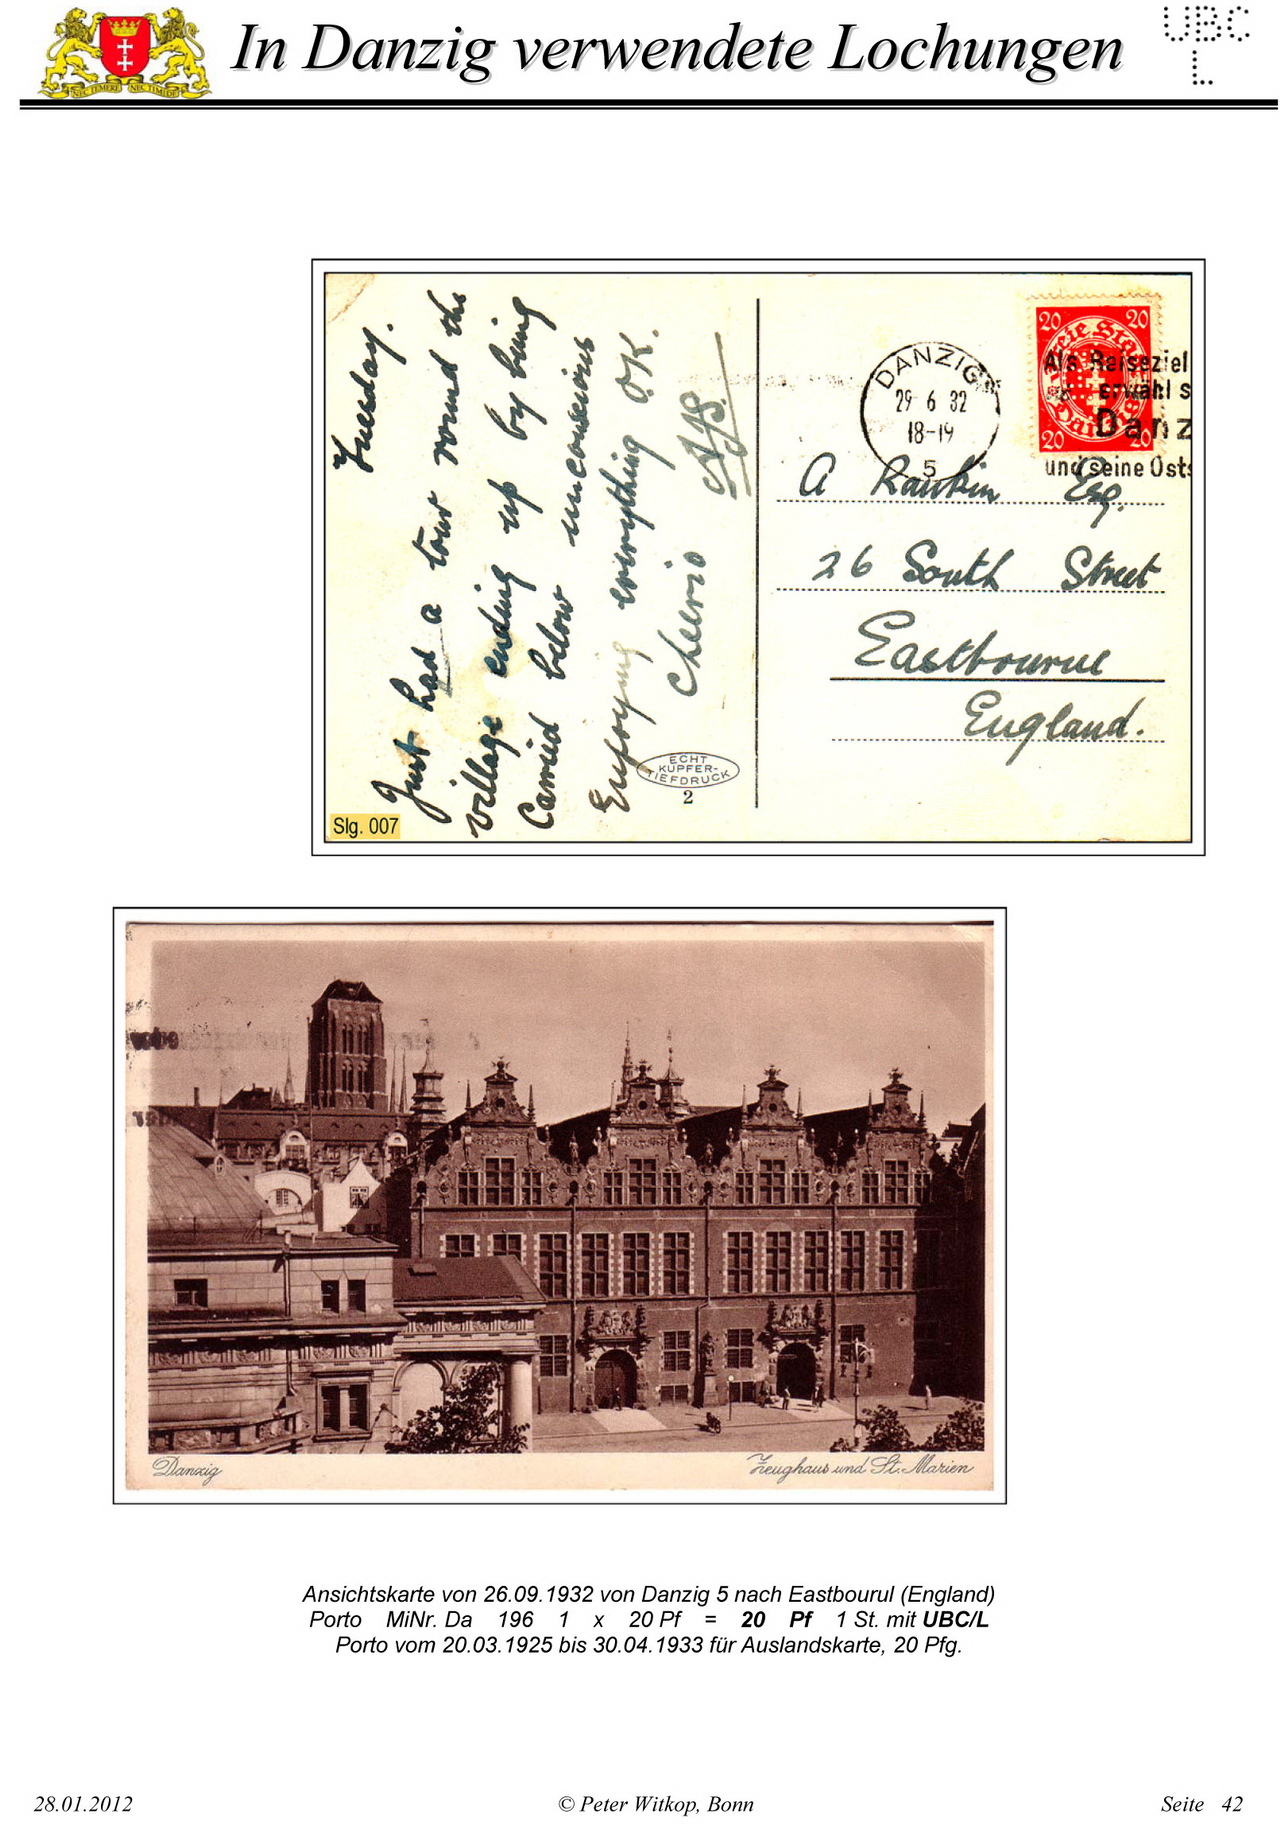 In Danzig verwendete Lochungen
UBC
L
NEC TEMERE NEC TIMIDE
Tuesday.
Just had a tour round the
village ending up by being
Carried below unconscious
Enjoying everything O.K.
Cheerio
ECHT
KUPFER-
TIEFDRUCK
2
Slg. 007
DANZIG
29 6 32
18-19
5
20 20
Freie Stadt
Danzig
20 20
Als Reiseziel
erwähl s
Danz
und seine Osts
A Rankin Esq.
26 South Street
Eastbourne
England.
Danzig
Zeughaus und St. Marien
Ansichtskarte von 26.09.1932 von Danzig 5 nach Eastbourul (England)
Porto MiNr. Da 196 1 x 20 Pf = 20 Pf 1 St. mit UBC/L
Porto vom 20.03.1925 bis 30.04.1933 für Auslandskarte, 20 Pfg.
28.01.2012
© Peter Witkop, Bonn
Seite 42